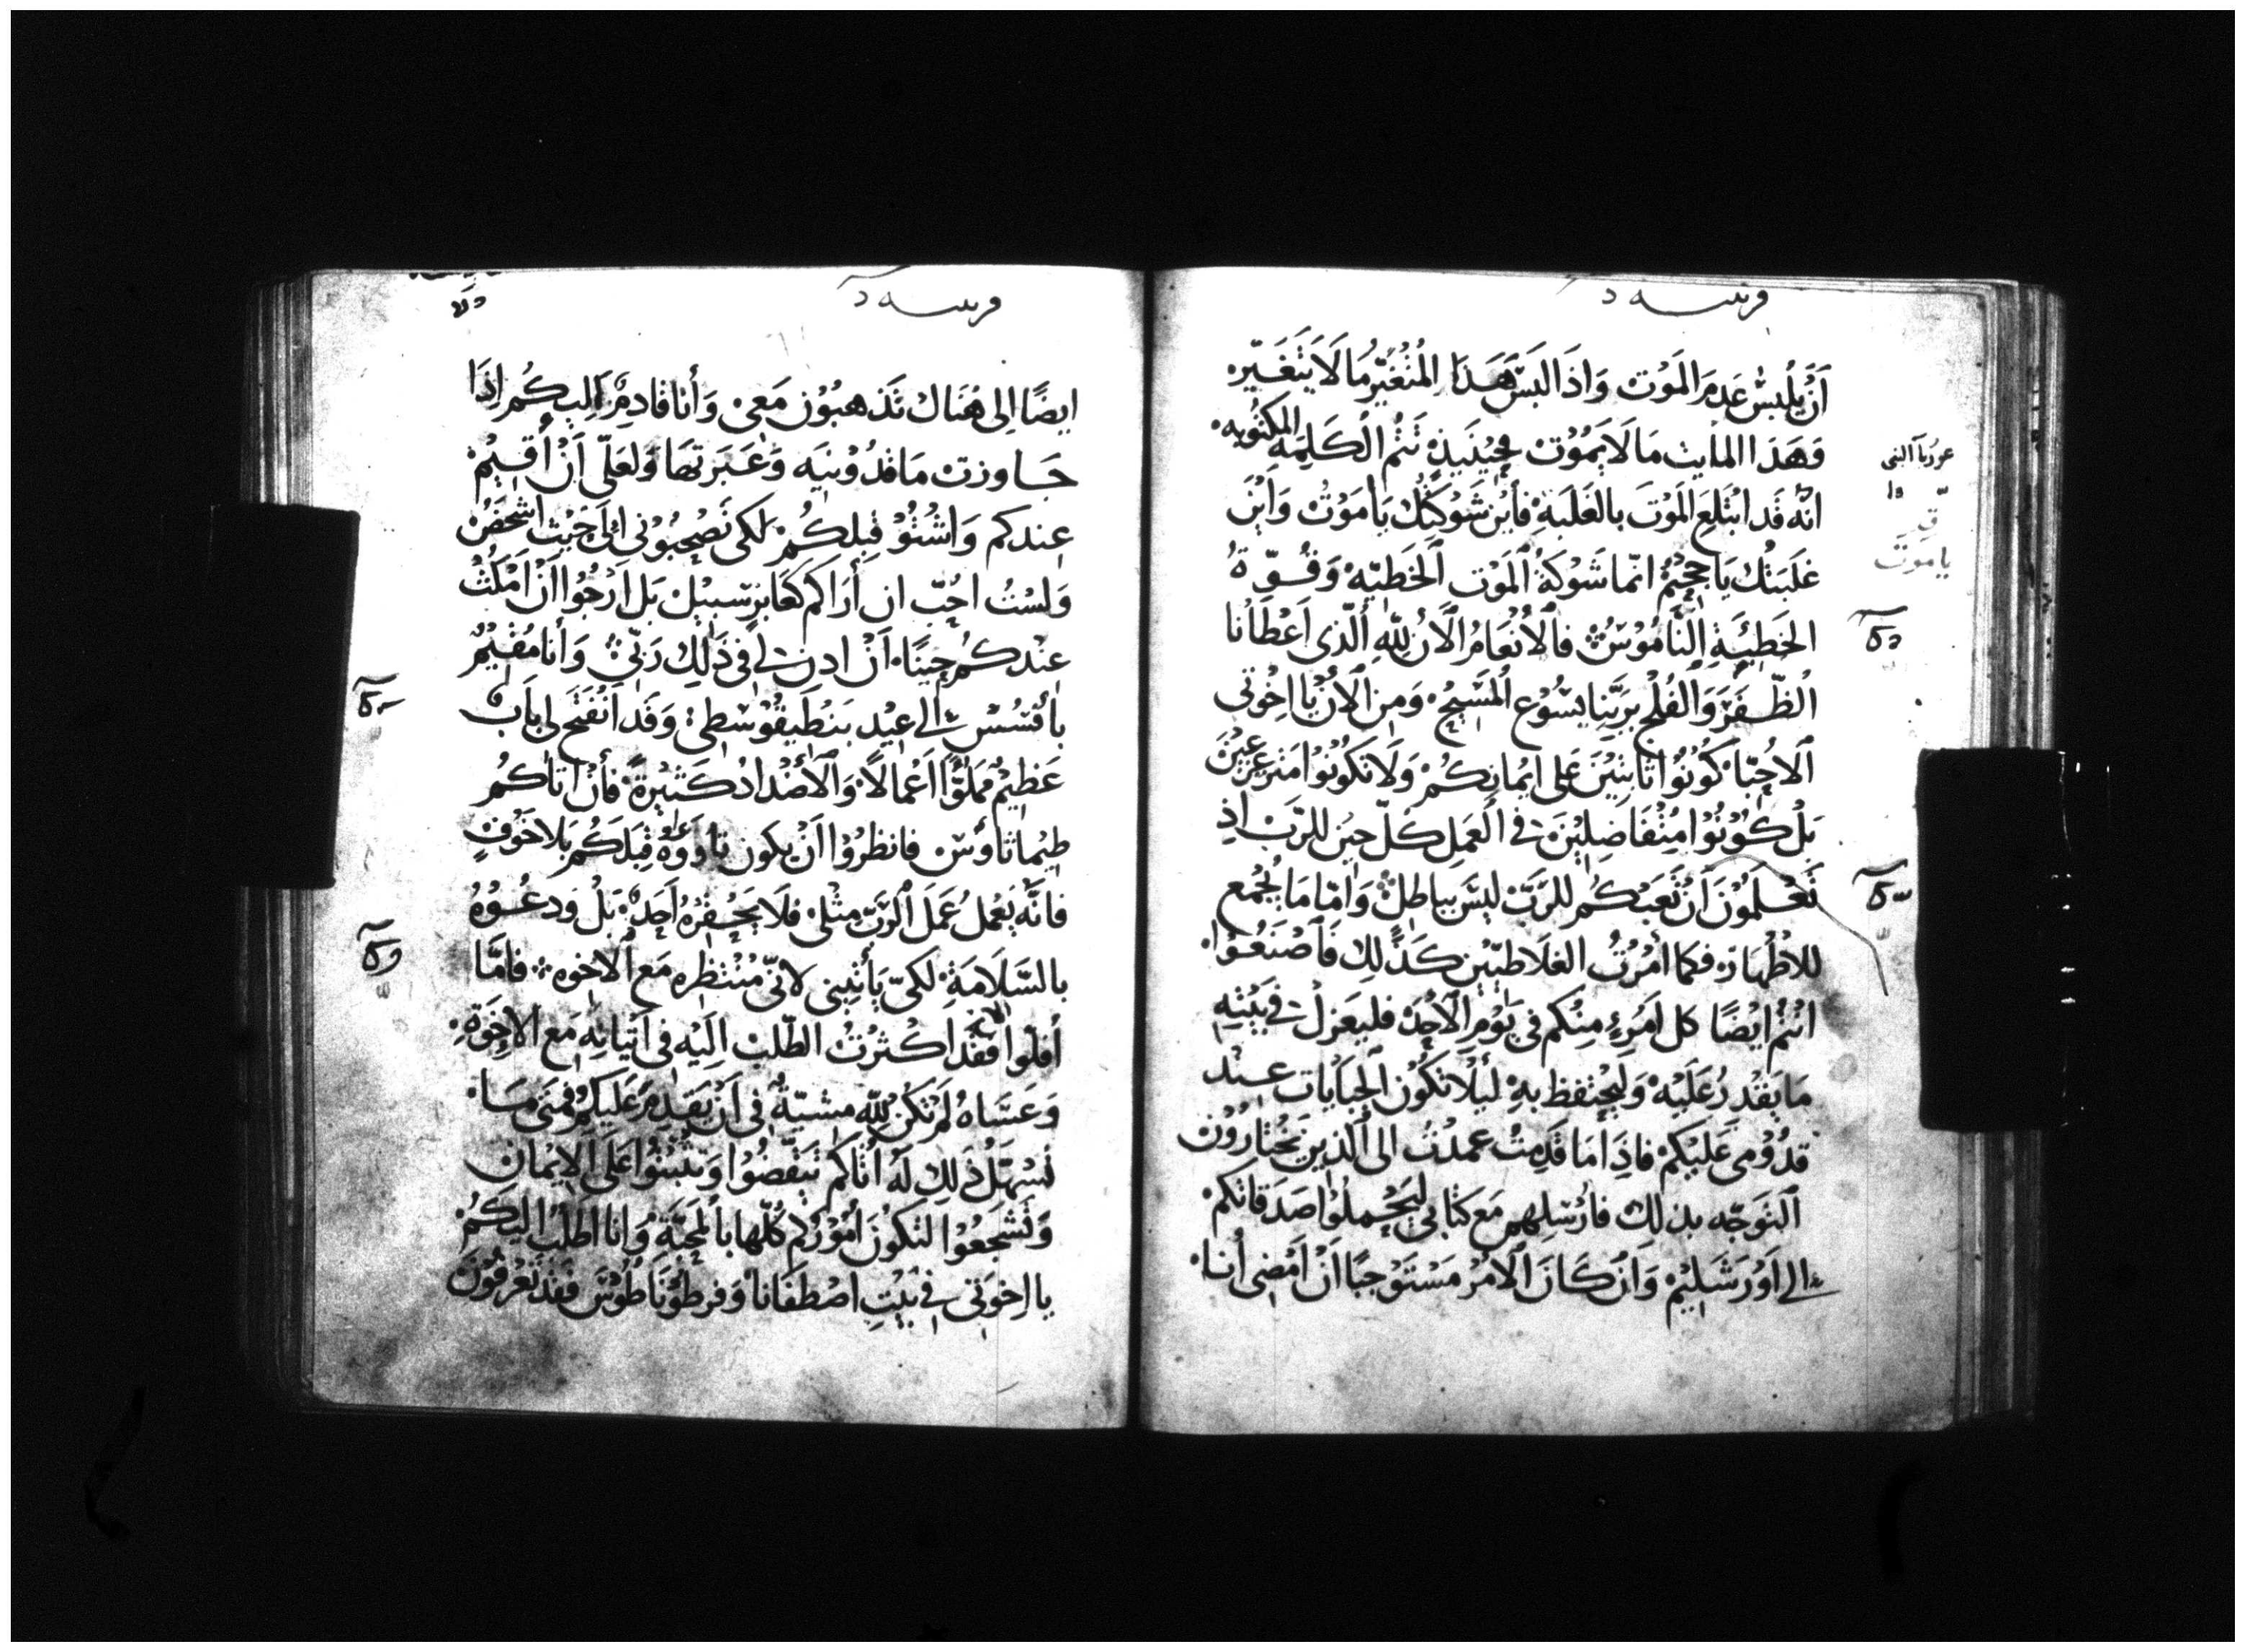 أَنْ يَلْبَسَ عَدَمَ المَوْت وَاذَا لَبَسَ هَذَا المُتغَيّر مَا لَا يَتَغَيّر
وَهَذَا المايت مَا لَا يَمُوْت فَحِيْنَيذٍ تَتُم الْكَلِمَه المكتوبه
انّه قَد ابْتَلِعَ المَوْتَ بالغَلَبَةِ فأَيْن شَوْكَتُكَ يَا مَوْتُ وَأَيْنَ
غَلَبَتُكَ يَا جَحِيْمُ انّما شَوْكَةُ اَلمَوْت اَلخَطيّه وَقُوّةُ
الخَطِيَّةِ النَّامُوْسُ فالْانْعَامُ الْآنَ لِلّهِ الّذى اعْطَانا
الظّفَرَ وَالفُلْجَ بِرَبِّنا يسُوْع المَسِيْح وَمِن الْآنَ يا اخْوتى
الاحِبّا كُونُوا ثابِتِيْنَ عَلى ايْمانِكُمْ وَلَا تَكُوْنُوْا مَتزعزعِيْنَ
بَلْ كُوْنُوْا مُتَفَاضِلِيْنَ فى الْعَمَلِ كُلّ حِيْن للرَّب اذ
تَعْلَمُوْنَ اَنْ تَعَبَكُم للرَّبّ لَيْسَ بباطِلٌ وَامّا مَا يُجْمع
للاطْهَار فكما امَرْتُ الغلَاطيّين كَذَلِك فاصْنَعُوْا
انْتُمْ ايْضًا كل امَرِءٍ مِنْكُم فى يَوْمِ الْأَحِدْ فليعَزلْ فى بَيْتِهِ
مَا يَقْدِرُ عَلَيْه وَلْيَحْتَفظ بهِ لَيْلَا تَكُوْن الْجبَايَات عِنْد
قدُوْمى عَلَيْكم فاذِا مَا قَدِمْتُ عمدْتُ الى الّذِين تخْتارُوْن
التوَجّه بذلِك فأُرْسِلهم مَع كتابى ليَحْملُوْا صَدَقاتكمْ
الى اوْرَشَلِيْم وَانْ كَانَ الْامْر مَسْتَوْجبًا انْ امْضى أنا
ايضًا إلى هُنَاك تَذهبُوْن مَعى وَأنا قادِمٌ الِيكُم اِذَا
جَاوزت مَاقدُوْنيَه وَعَبَرتهَا وَلعَلّى أنْ أُقِيْمْ
عِندكم وَاشْتُوْ قِبلكُمْ لكى تصْحَبُوْنى الى حَيْث اشخَصْ
وَلسْتُ احِبّ ان أَرَاكم كعَابر سَبيْل بَل ارْجُوْا انْ امْكثْ
عِنْدكُم حِينًا أنْ اذِن لى فى ذَلِك رَبّى وَأنا مُقيْمٌ
باقسُسْ الى عيْد بَنطيقوُسْطى وَقَد انْفتَح لى بَابٌ
عَظِيْم مُمَلوًّا اعْمالًا وَالْأضْدادُ كَثيْرة فأنْ اتاكُم
طيْماثاوسْ فانظرُوْا انْ يكون ثاوؤه قِبَلكُم بَلا خَوْفٍ
فانَّه يَعْملُ عَمَلَ الرَّبّ مِثْلى فلَا يَحْقِرْهُ أَحَدٌ بَلْ وَدعُوْهُ
بالسَّلَامَةِ لكىّ يَأتِينى لانّى مُنْتظِره مَع الْاخوه فامَّا
أفلوا الاخ فقد اكْثَرْتُ الطّلب الَيْه فى اتيانِهِ مَع الاخِوَةِ
وَعَسَاهُ لَمْ تكُن لِلّه مشيّةٌ فى انْ يَقْدِمَ عَلَيكم فمَتى مَا
تسَهَّلَ ذَلِك لَهُ أتاكم تيقّضوُا وَتثبْتُوْا عَلَى الْايْمان
وَتَشَجّعُوْا لتكُوْنَ أُمُوْرُكم كُلّها بالمَحبَّةِ وَانا اطَلبُ اليكُمْ
يا اخوَتى فى بَيْتِ اصْطفَانا وَفرطوْنَاطُوْسَ فقد تعْرفُوْنَ